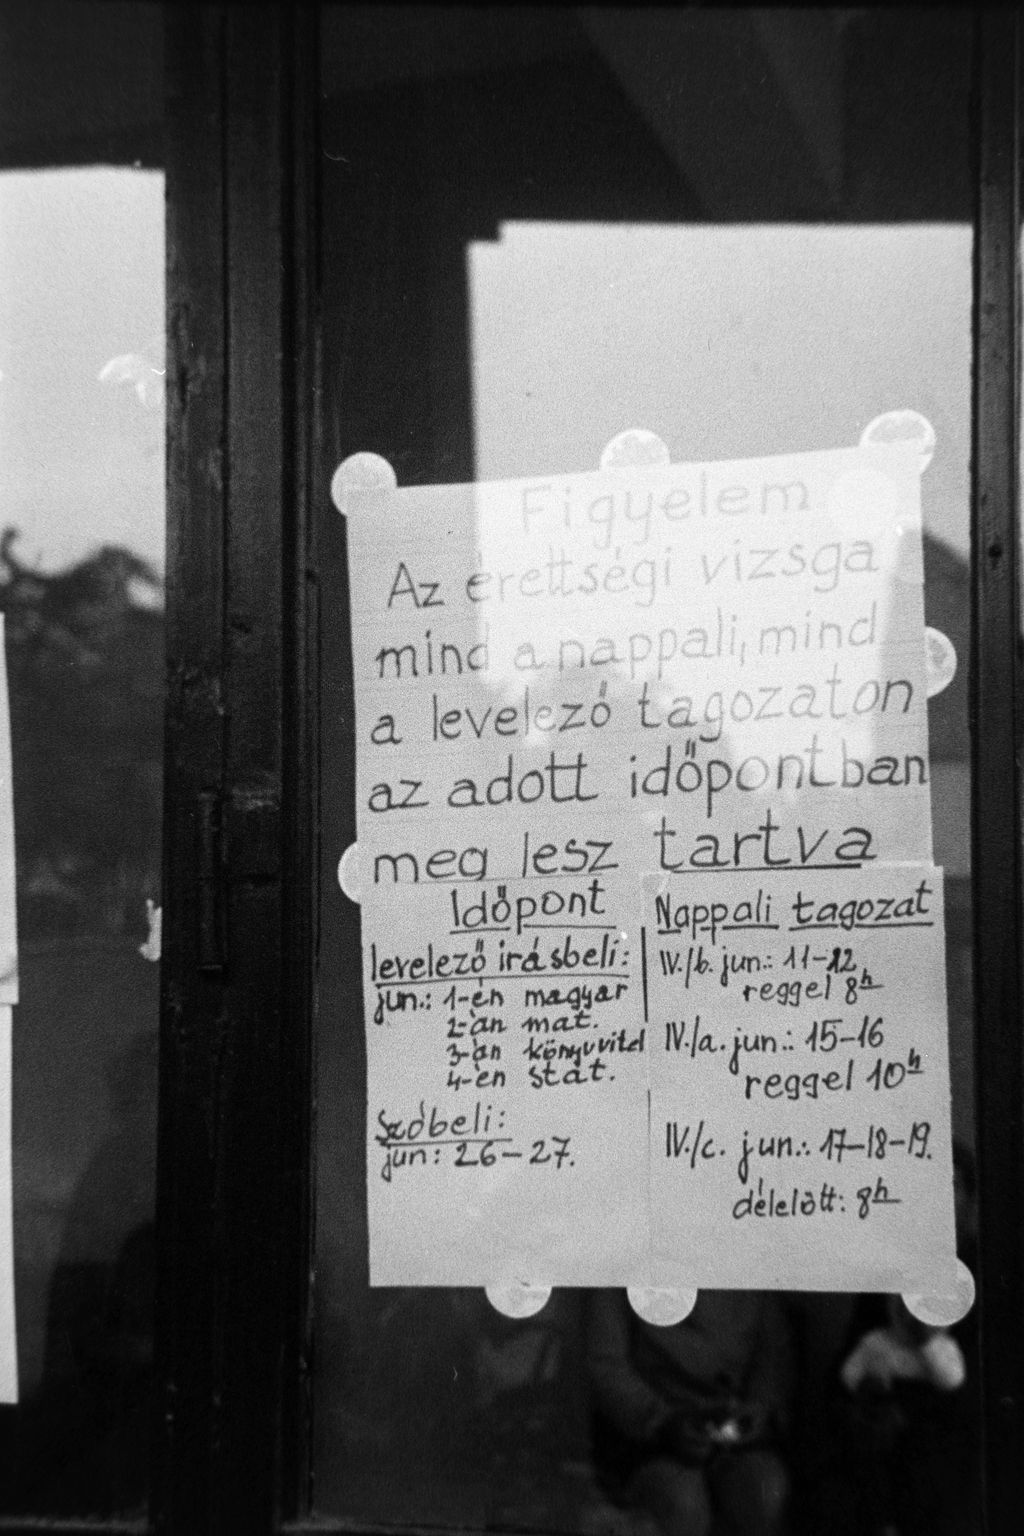 Figyelem
Az érettségi vizsga
mind a nappali, mind
a levelező tagozaton
az adott időpontban
meg lesz tartva
Időpont
levelező írásbeli:
jun.: 1-én magyar
2-án mat.
3-án könyvvitel
4-én stat.
Szóbeli:
jun: 26-27.
Nappali tagozat
IV./b. jun.: 11-12
reggel 8h
IV./a. jun.: 15-16
reggel 10h
IV./c. jun.: 17-18-19.
délelőtt: 8h